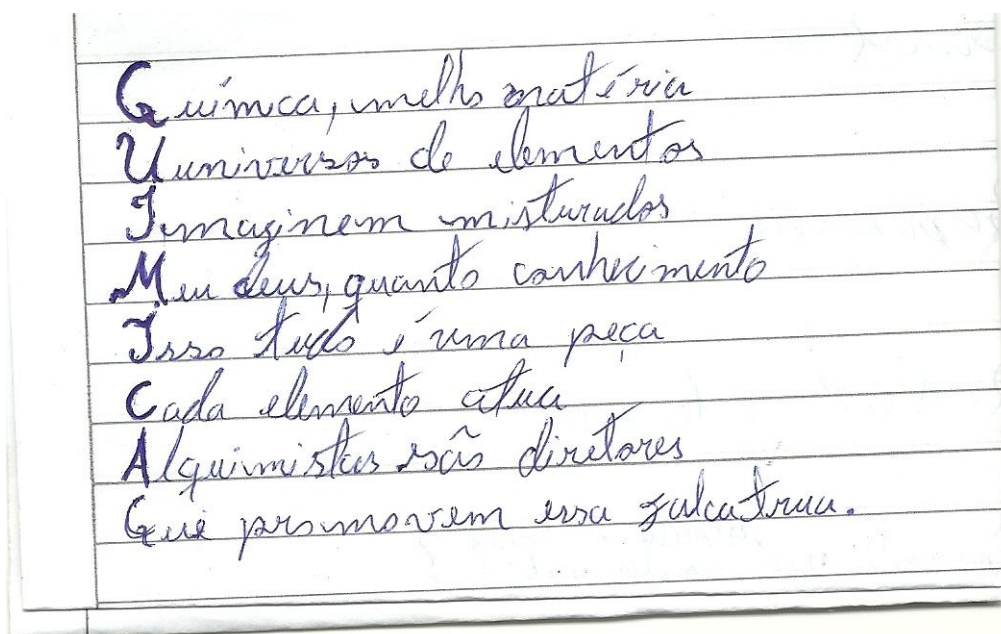 Química, melho matéria
Uuniversos de elementos
Imaginem misturados
Meu deus, quanto conhecimento
Isso tudo é uma peça
Cada elemento atua
Alquimistas são diretores
Que promovem essa falcatrua.